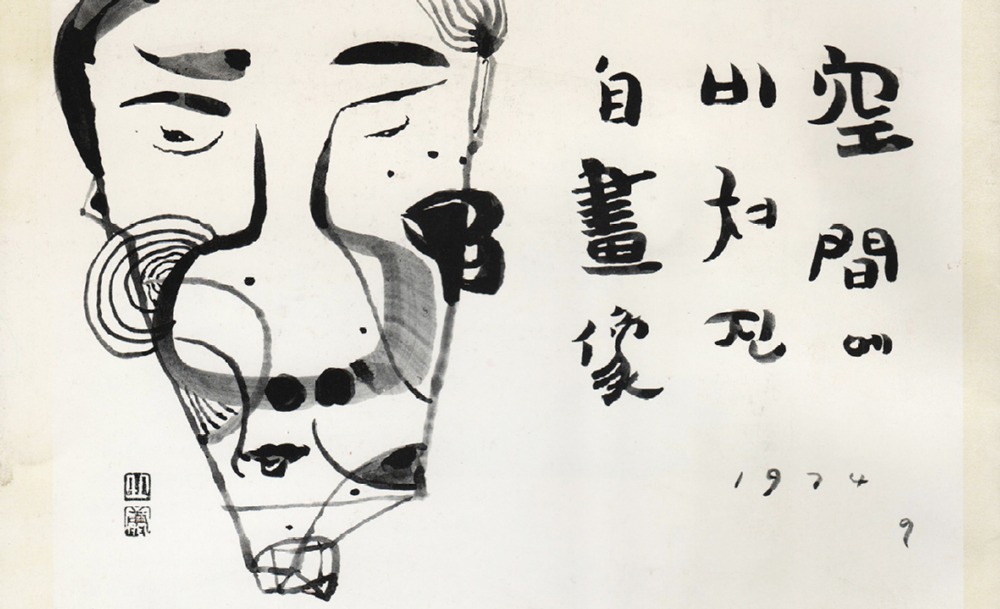 空間에
비쳐진
自畫像
1974
9